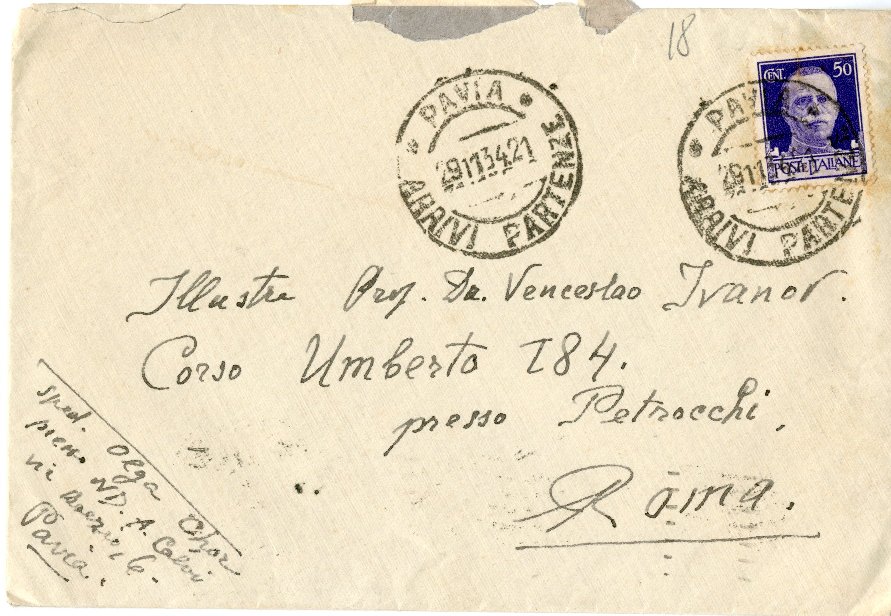 18
CENT. 50
POSTE ITALIANE
PAVIA
29 11 34. 21
ARRIVI PARTENZE
PAVIA
29 11
ARRIVI PARTENZE
Illustre Prof. Dr. Venceslao Ivanov.
Corso Umberto 184.
presso Petrocchi,
Roma.
sped. Olga
presso ND. A. Calvi
via Boezio 6.
Pavia.